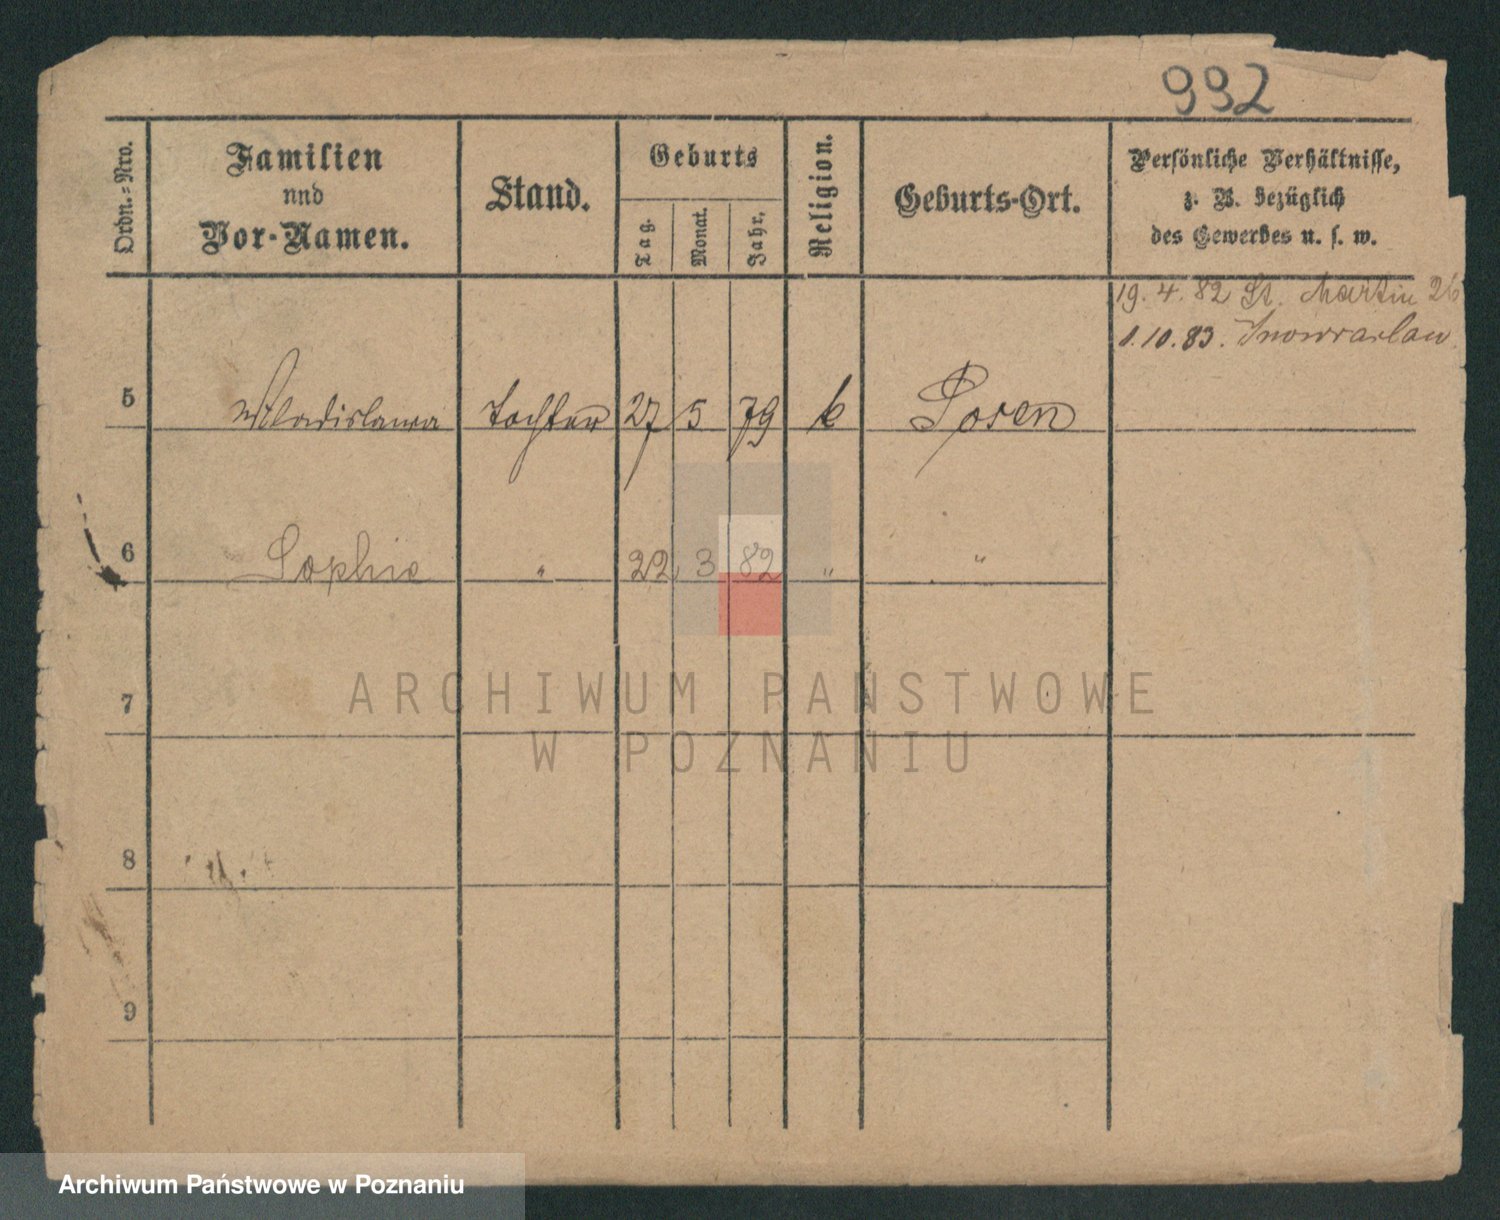 992
Ordn.=Nro.
Familien
und
Vor-Namen.
Stand.
Geburts
Tag.
Monat.
Jahr.
Religion.
Geburts-Ort.
Persönliche Verhältnisse,
z. B. bezüglich
des Gewerbes u. s. w.
19. 4. 82 St. Martin 26
1. 10. 83. Inowraclaw
5 Wladislawa Tochter 27 5 79 k Posen
6 Sophie " 22 3 82 " "
7
8
9
ARCHIWUM PAŃSTWOWE
W POZNANIU
Archiwum Państwowe w Poznaniu